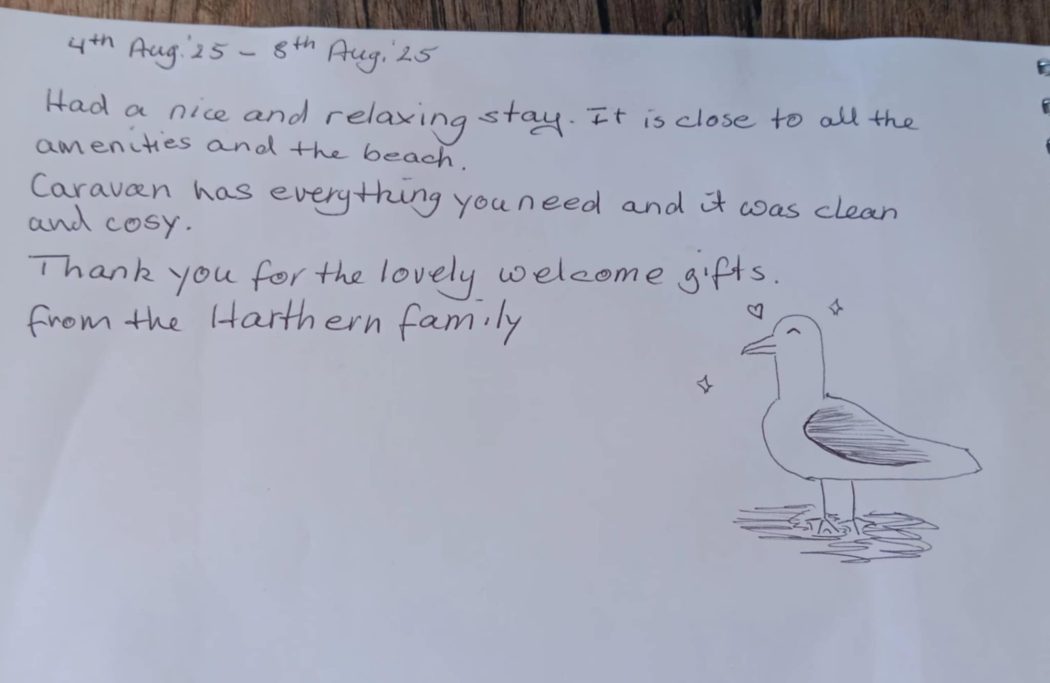 4th Aug.'25 - 8th Aug.'25
Had a nice and relaxing stay. It is close to all the
amenities and the beach.
Caravan has everything you need and it was clean
and cosy.
Thank you for the lovely welcome gifts.
from the Harthern family